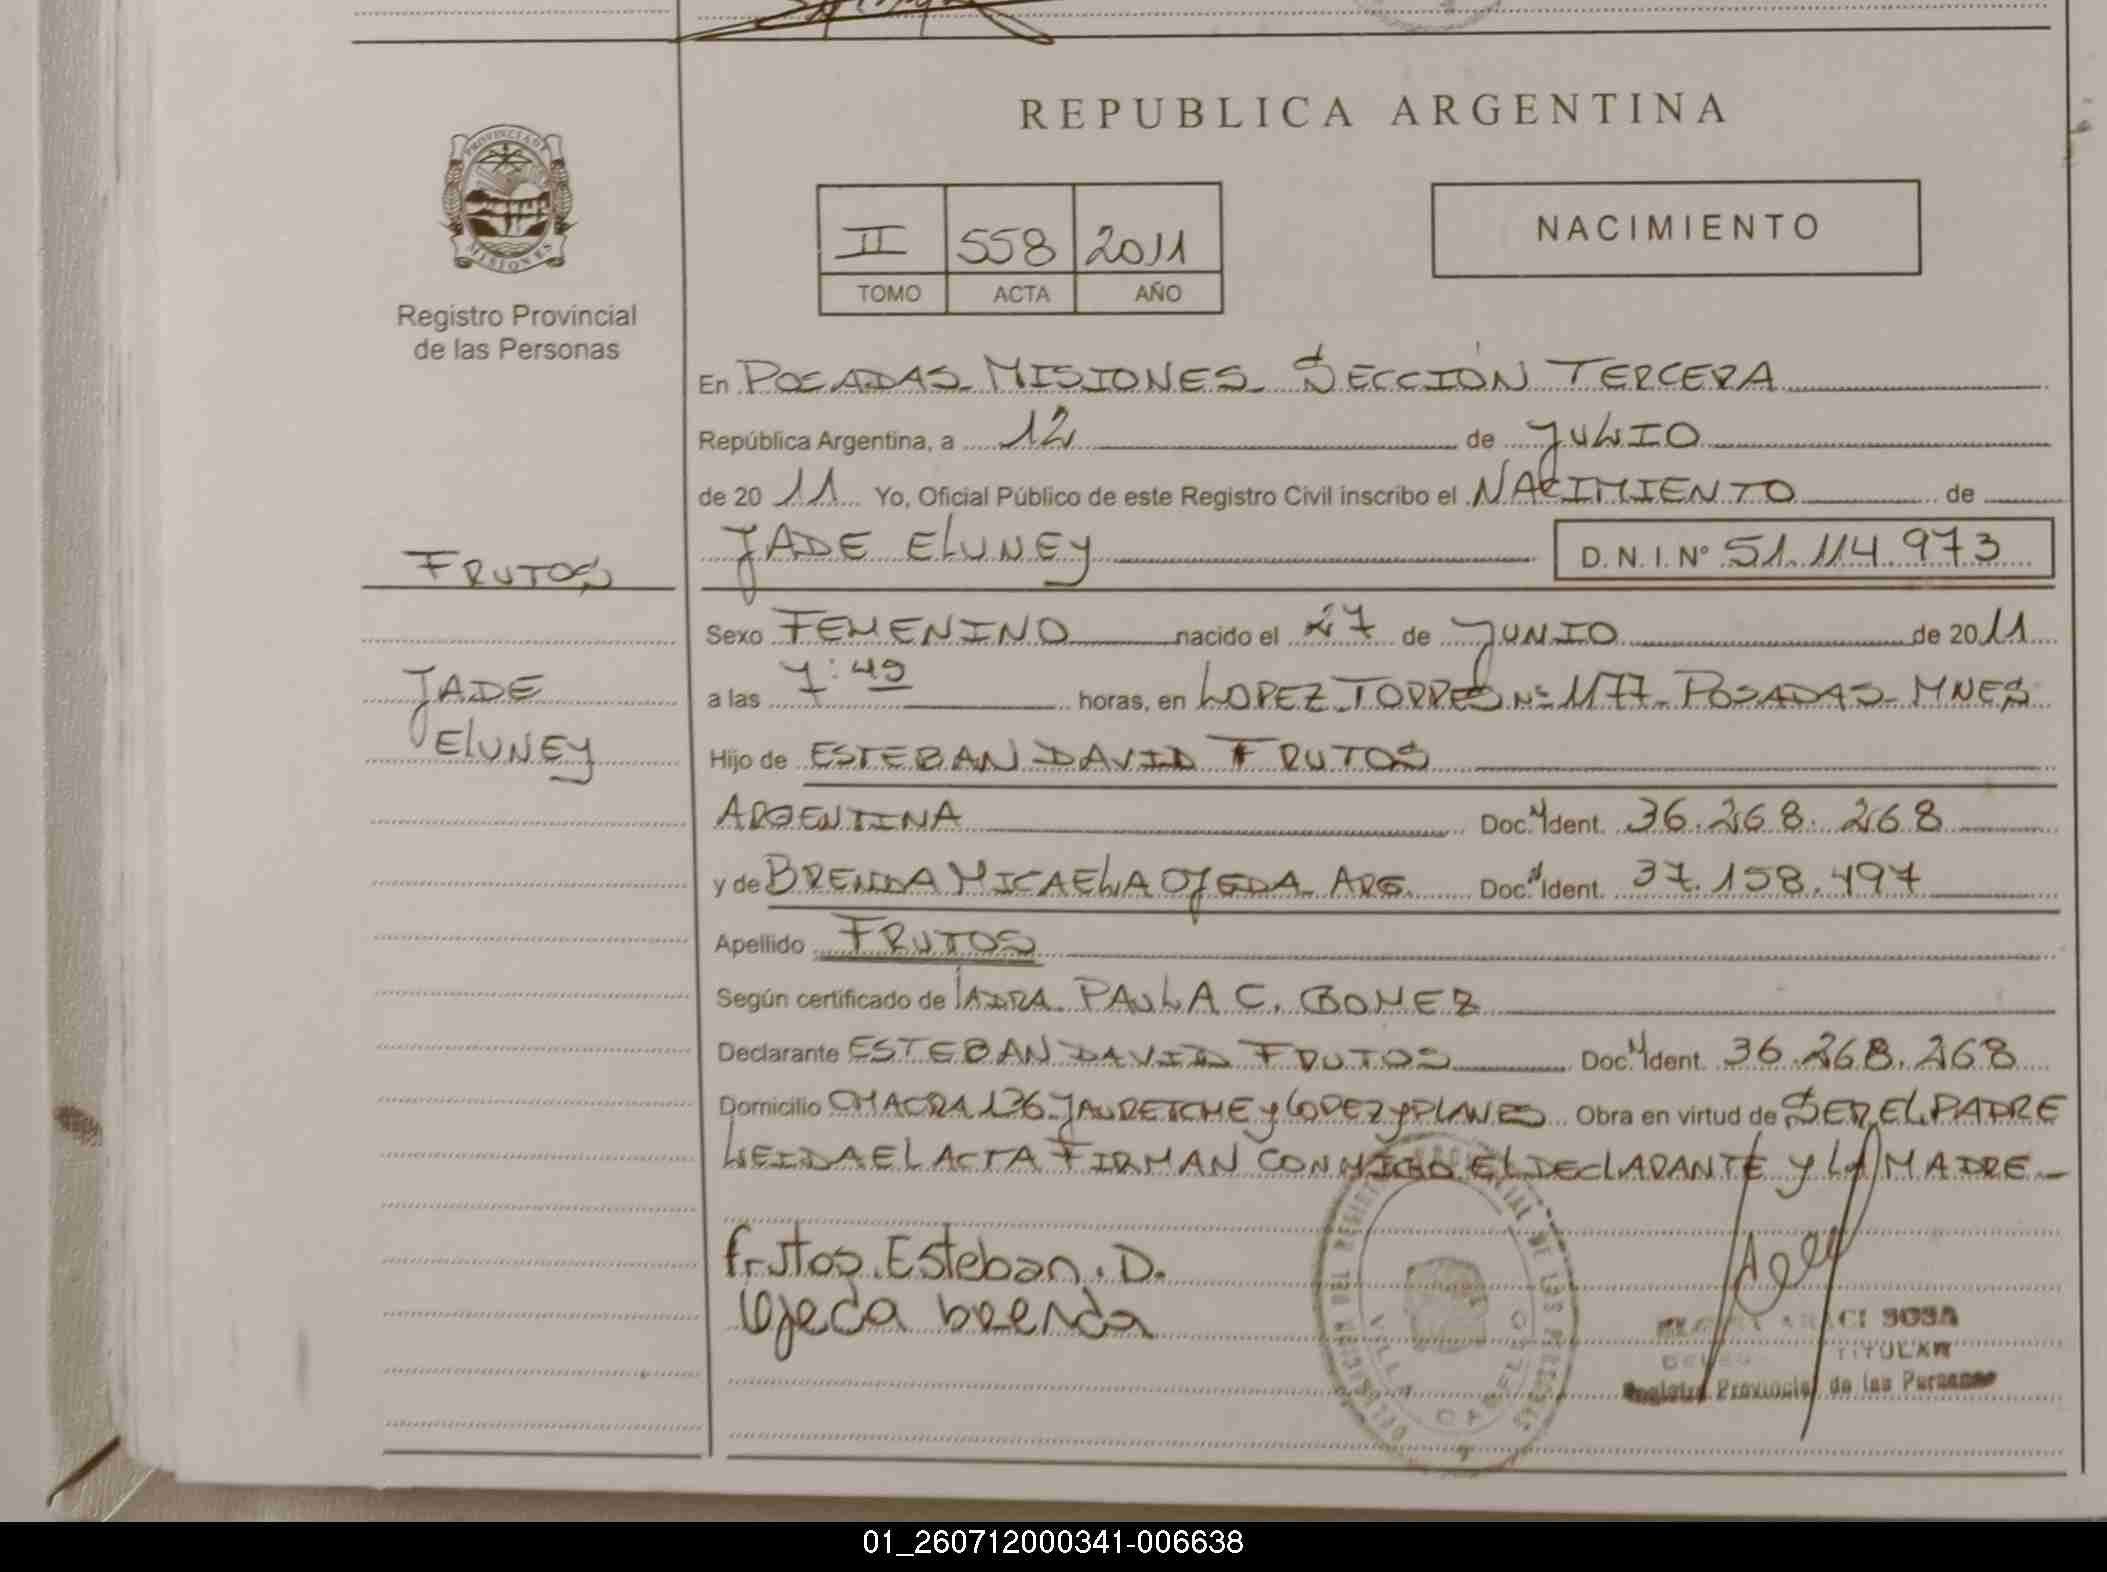 REPUBLICA ARGENTINA
PROVINCIA DE
MISIONES
Registro Provincial
de las Personas
II 558 2011
TOMO ACTA AÑO
NACIMIENTO
En POSADAS- MISIONES- SECCIÓN TERCERA
República Argentina, a 12 de JULIO
de 2011 Yo, Oficial Público de este Registro Civil inscribo el NACIMIENTO de
JADE ELUNEY D. N. I. Nº 51.114.973
FRUTOS
JADE
ELUNEY
Sexo FEMENINO nacido el 27 de JUNIO de 2011
a las 7:49 horas, en LOPEZ TORRES Nº 1177- POSADAS- MNES
Hijo de ESTEBAN DAVID FRUTOS
ARGENTINA Doc. Ident. 36.268.268
y de BRENDA MICAELA OJEDA- ARG. Doc. Ident. 37.158.497
Apellido FRUTOS
Según certificado de LA DRA. PAULA C. GOMEZ
Declarante ESTEBAN DAVID FRUTOS Doc. Ident. 36.268.268
Domicilio CHACRA 126- JAURETCHE y LOPEZ y PLANES Obra en virtud de SER EL PADRE
LEIDA EL ACTA FIRMAN CONMIGO EL DECLARANTE y LA MADRE-
frutos. Esteban. D.
Ojeda brenda
VILLA CABELLO
SOSA
TITULAR
Registro Provincial de las Personas
01_260712000341-006638